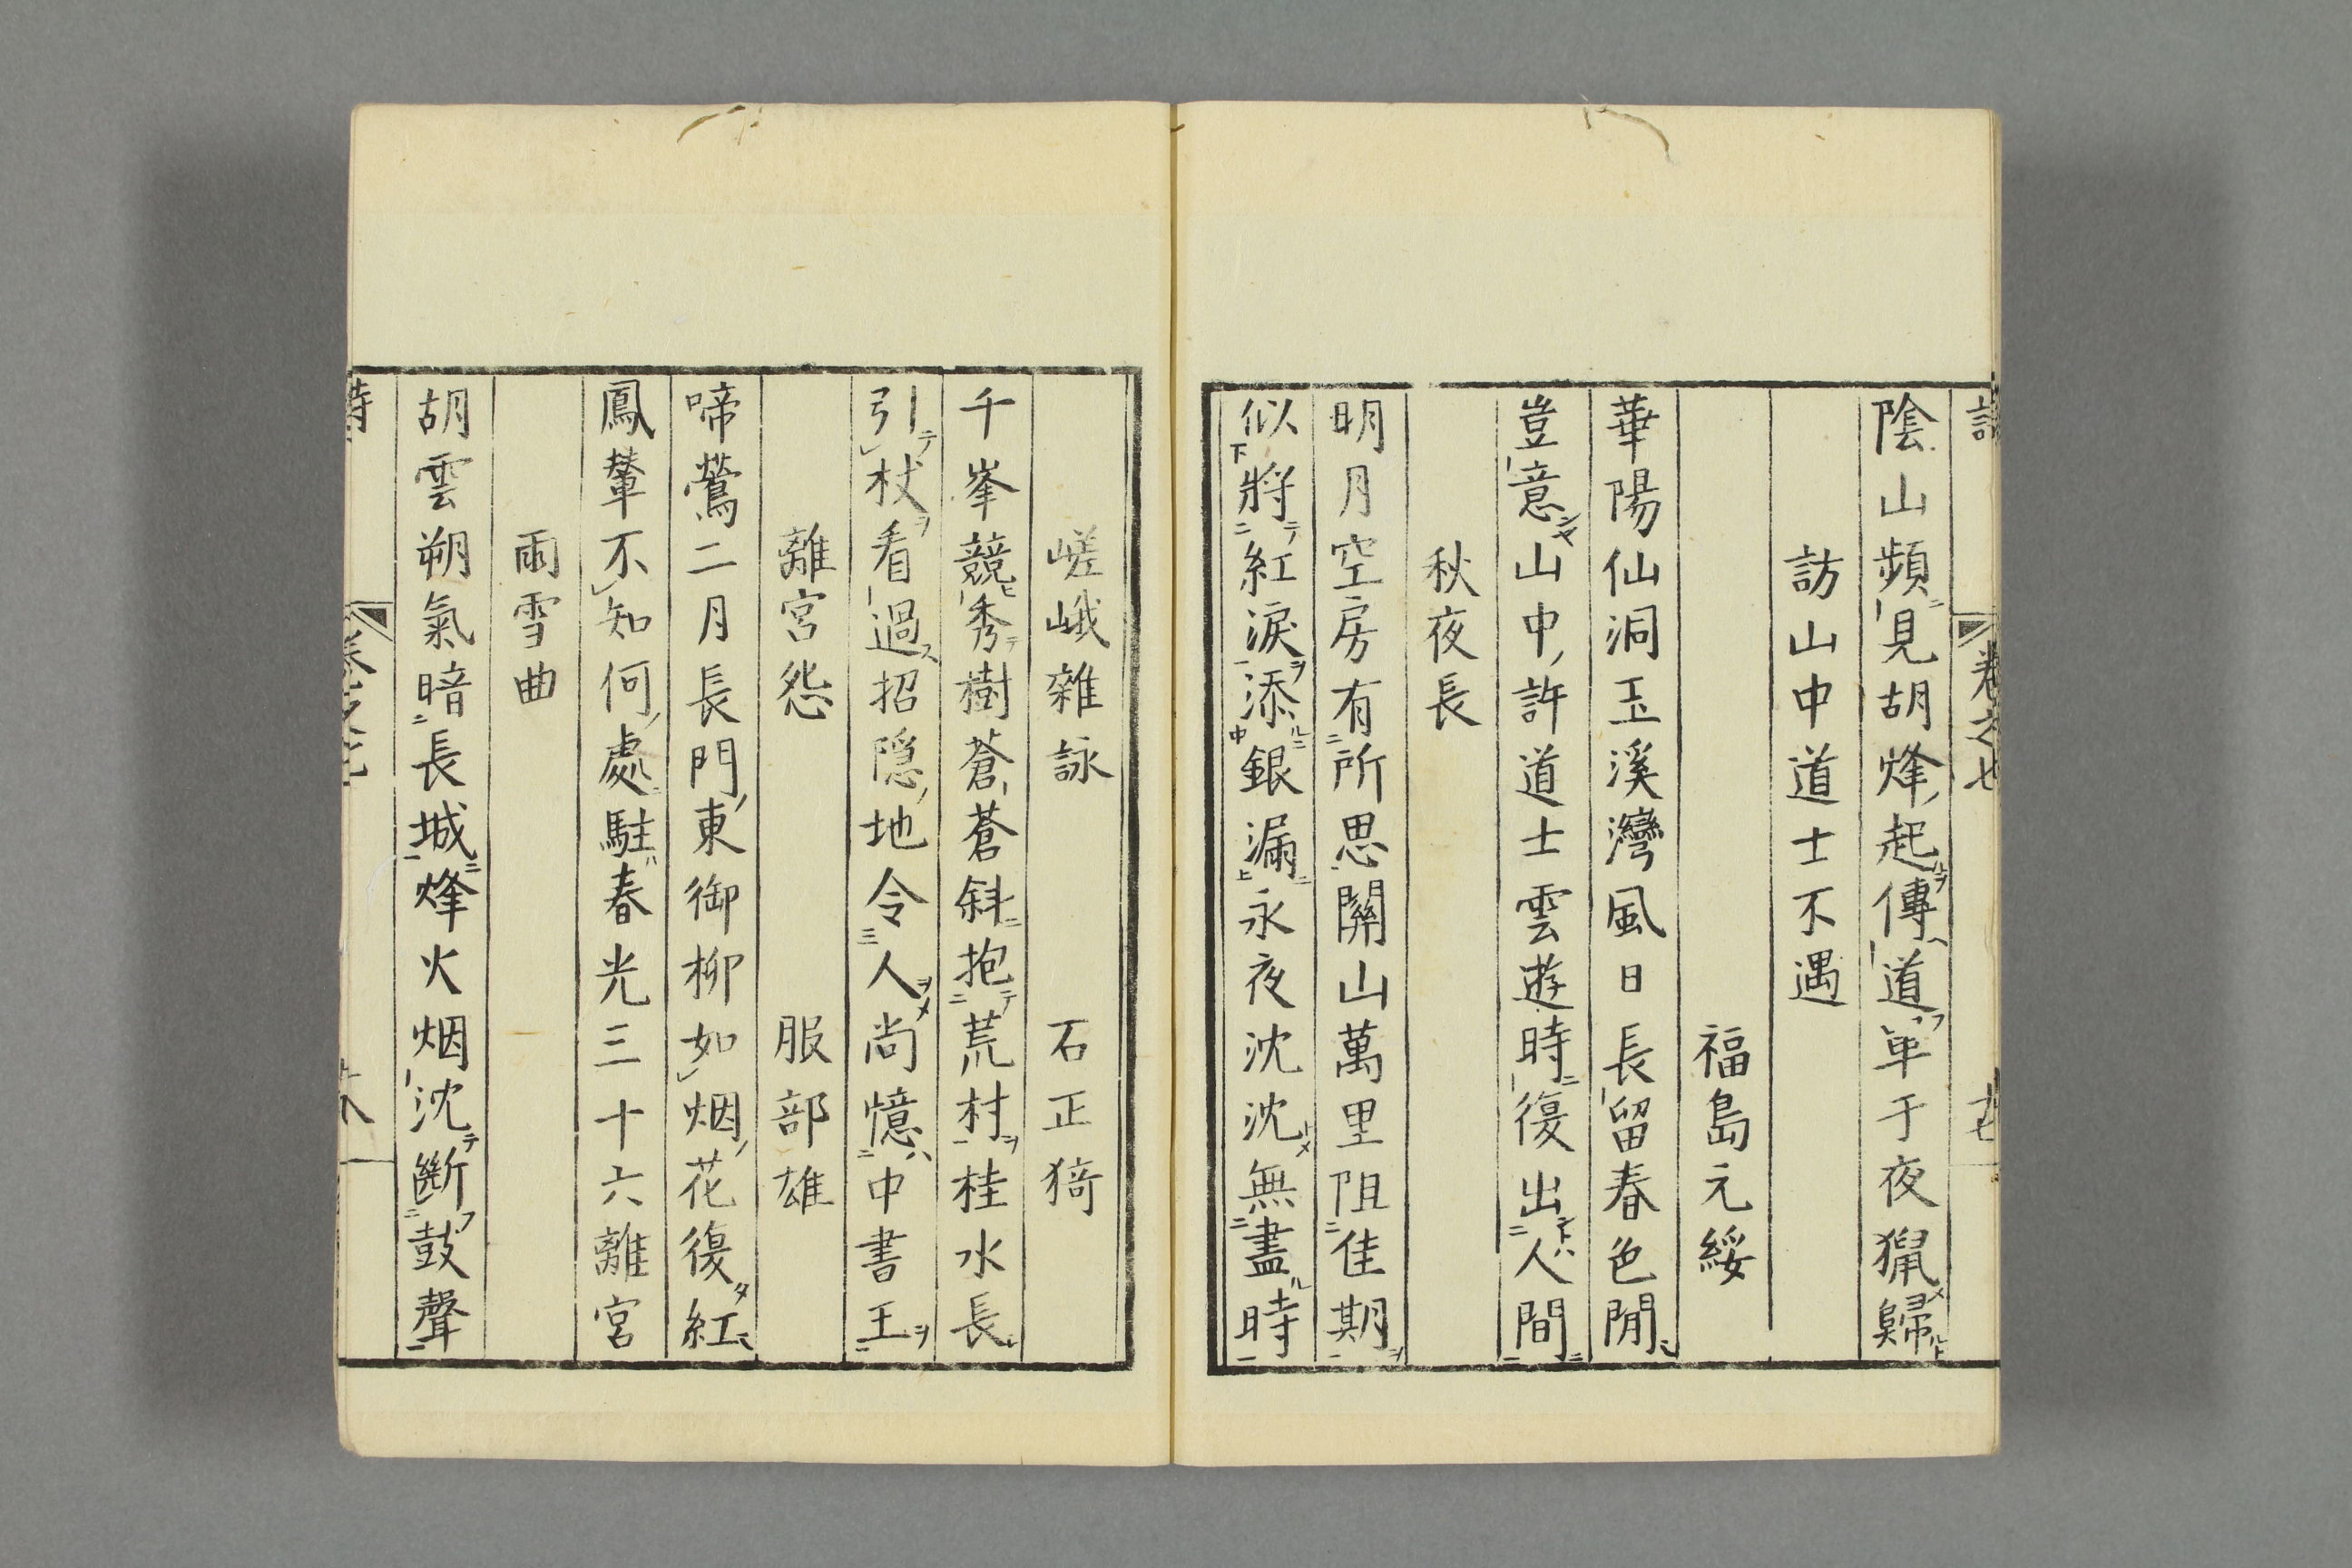 陰山頻見胡烽起傳道單于夜獵歸
訪山中道士不遇
福島元綏
華陽仙洞玉溪灣風日長留春色閒
豈意山中許道士雲遊時復出人間
秋夜長
明月空房有所思關山萬里阻佳期
似將紅淚添銀漏永夜沈沈無盡時
嵯峨雜詠 石正猗
千峯競秀樹蒼蒼斜抱荒村桂水長
引杖看過招隱地令人尚憶中書王
離宮怨 服部雄
啼鶯二月長門東御柳如烟花復紅
鳳輦不知何處駐春光三十六離宮
雨雪曲
胡雲朔氣暗長城烽火烟沈斷鼓聲